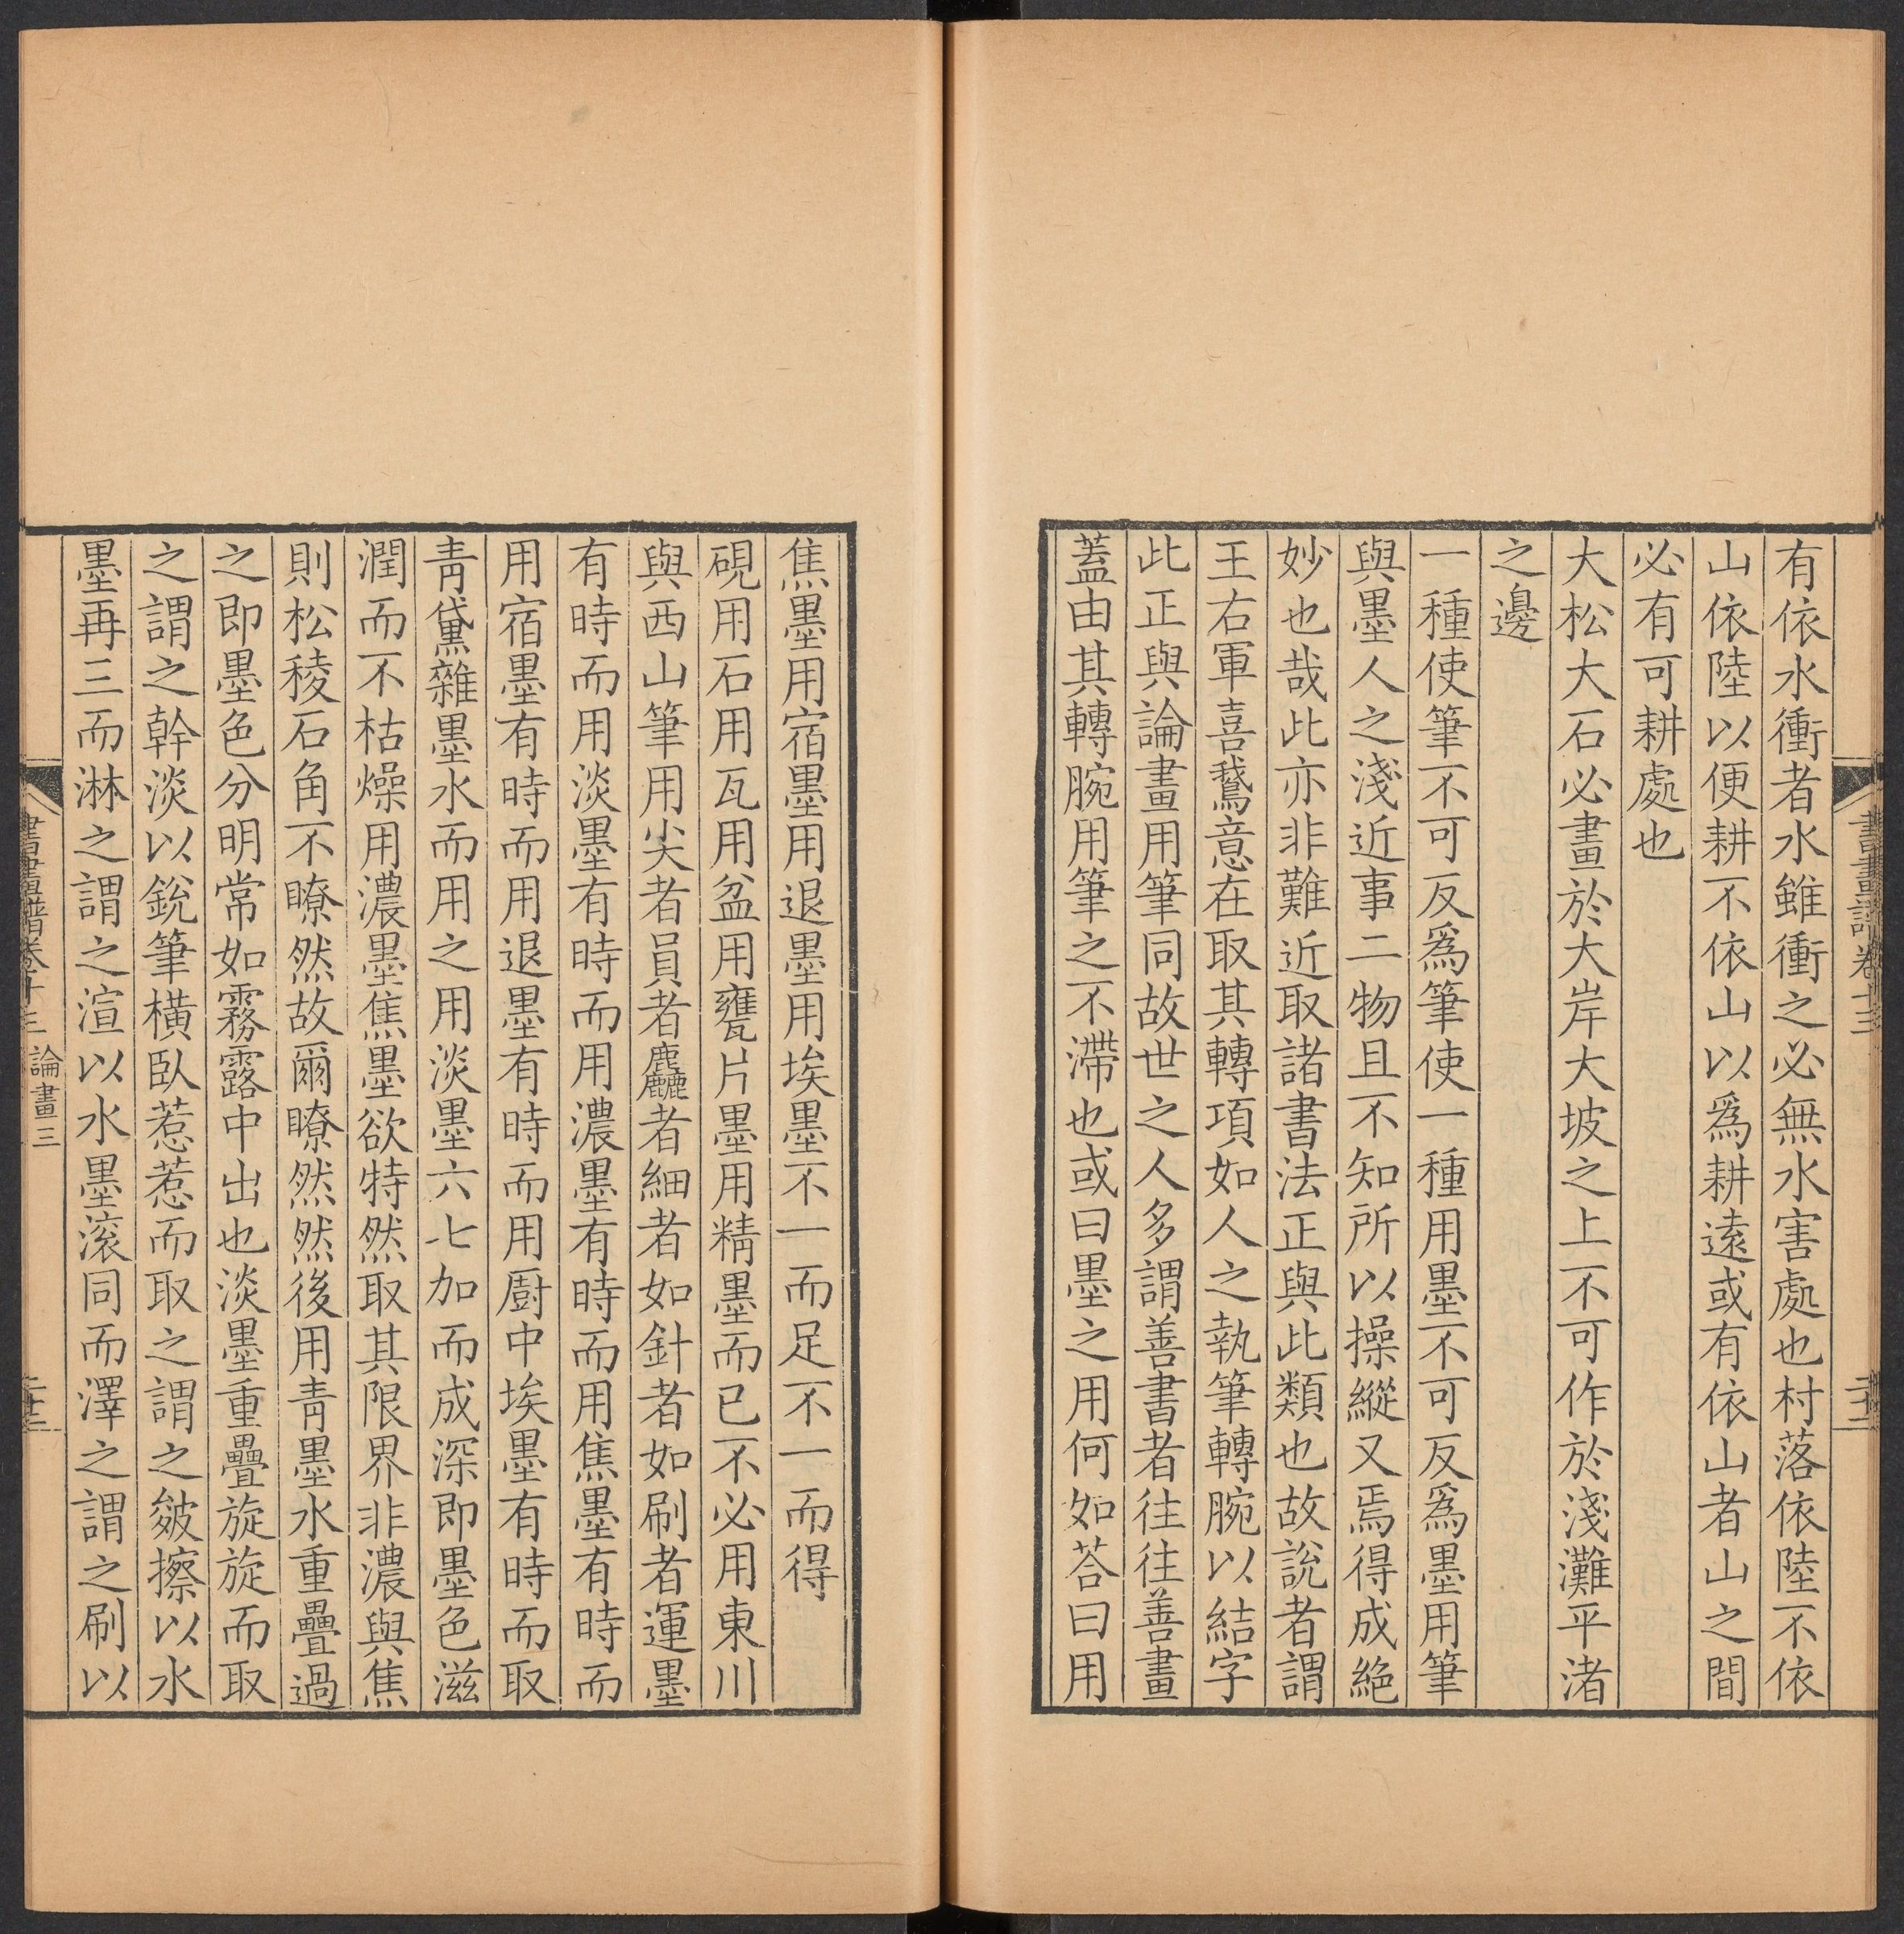 書畫譜卷十三
二十二
有依水衝者水雖衝之必無水害處也村落依陸不依
山依陸以便耕不依山以爲耕遠或有依山者山之間
必有可耕處也
大松大石必畫於大岸大坡之上不可作於淺灘平渚
之邊
一種使筆不可反爲筆使一種用墨不可反爲墨用筆
與墨人之淺近事二物且不知所以操縱又焉得成絶
妙也哉此亦非難近取諸書法正與此類也故說者謂
王右軍喜鵞意在取其轉項如人之執筆轉腕以結字
此正與論畫用筆同故世之人多謂善書者往往善畫
蓋由其轉腕用筆之不滯也或曰墨之用何如荅曰用
焦墨用宿墨用退墨用埃墨不一而足不一而得
硯用石用瓦用盆用甕片墨用精墨而已不必用東川
與西山筆用尖者員者麤者細者如針者如刷者運墨
有時而用淡墨有時而用濃墨有時而用焦墨有時而
用宿墨有時而用退墨有時而用廚中埃墨有時而取
青黛雜墨水而用之用淡墨六七加而成深即墨色滋
潤而不枯燥用濃墨焦墨欲特然取其限界非濃與焦
則松稜石角不瞭然故爾瞭然然後用青墨水重疊過
之即墨色分明常如霧露中出也淡墨重疊旋旋而取
之謂之幹淡以銳筆橫臥惹惹而取之謂之皴擦以水
墨再三而淋之謂之渲以水墨滾同而澤之謂之刷以
書畫譜卷十三 論畫三